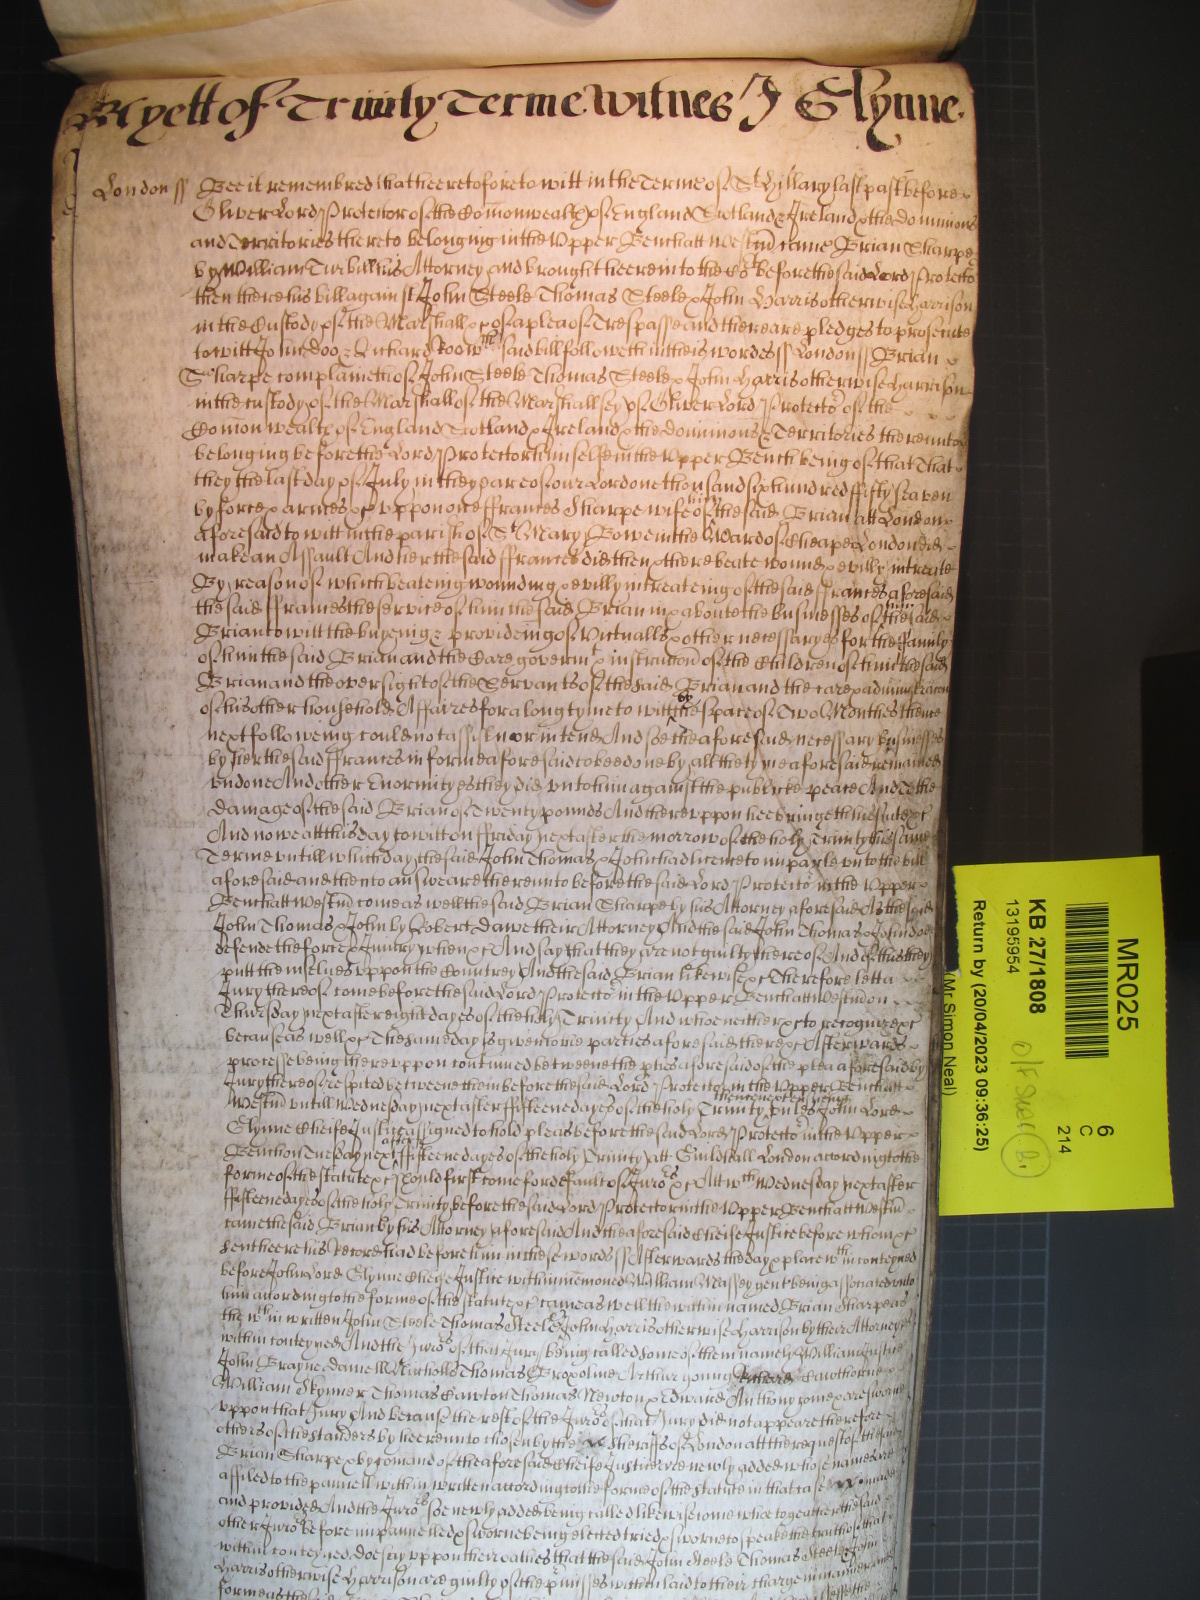 Ryett of Trinity Terme Witnes J Glynne.
London ss Bee it remembred that heeretofore to witt in the Terme of St Hillary last past before
Oliver Lord Protector of the Comonwealth of England Scotland & Ireland & the dominions
and Territories thereto belonging in the Upper Bench att Westm came Brian Sharpe
by William Turbutt his Attorney and brought heere into the Ct before the said Lord Protector
then there his bill against John Steele Thomas Steele & John Harris otherwise Harrison
in the Custody of the Marshall &c of a plea of Trespasse and there are pledges to prosecute
to witt John Doo & Richard Roo wch said bill followeth in theis wordes ss London ss Brian
Sharpe complaineth of John Steele Thomas Steele & John Harris otherwise Harrison
in the custody of the Marshall of the Marshallsey of Oliver Lord Protector of the
Comonwealth of England Scotland & Ireland & the dominions & Territories thereunto
belonging before the Lord Protector himselfe in the Upper Bench being of that That
they the last day of July in the yeare of our Lord one thousand six hundred fifty seaven
by force & armes &c uppon one ffrances Sharpe wife of him the said Brian att London
aforesaid to witt in the parish of St Mary Bowe in the Ward of Cheape London did
make an Assault And her the said ffrances did then & there beate wound & evilly intreate
By reason of which beateing wounding & evilly intreateing of the said ffrances aforesaid
the said ffrances the service of him the said Brian in & about the businesses of the said
Brian to witt the buyeing & provideing of Victualls & other necessaryes for the Family
of him the said Brian and the Care governmt & instruccon of the Children of him the said
Brian and the oversight of the Servants of the said Brian and the care & administracon
of his other household Affaires for a long tyme to witt by the space of Two Monthes thence
next followeing could not assist nor intend And soe the aforesaid necessary businesses
by her the said ffrances in forme aforesaid to bee done by all the tyme aforesaid remained
undone And other Enormityes they did unto him against the publicke peace And To the
damage of the said Brian of Twenty pounds And thereuppon hee bringeth his suite &c
And nowe att this day to witt on ffriday next after the morrow of the holy Trinity this same
Terme untill which day the said John Thomas & John had licence to imparle unto the bill
aforesaid and then to answeare thereunto before the said Lord Protector in the Upper
Bench att Westm come as well the said Brian Sharpe by his Attorney aforesaid As the said
John Thomas & John by Robert Dawe their Attorney And the said John Thomas & John doe
defende the force & Iniury when &c And say that they are not guilty thereof And of this they
putt themselves uppon the Countrey And the said Brian likewise &c Therefore lett a
Jury thereof come before the said Lord Protector in the Upper Bench att Westm on
Thursday next after eight dayes of the holy Trinity And who neither &c to recognize &c
because as well &c The same day is given to the parties aforesaid there &c Afterwards
processe being thereuppon continued betweene the pties aforesaid of the plea aforesaid by
Jury thereof respited betweene them before the said Lord Protector in the Upper Bench att
Westm untill Wednesday next after fifteene dayes of the holy Trinity then next ensueing unles John Lord
Glynne Cheife Justice assigned to hold pleas before the said Lord Protector in the Upper
Bench on Tuesday next after fifteene dayes of the holy Trinity att Guildhall London according to the
forme of the statute &c should first come for default of Juro's &c Att wch Wednesday next after
fifteene dayes of the holy Trinity before the said Lord Protector in the Upper Bench att Westm
came the said Brian by his Attorney aforesaid And the aforesaid Cheife Justice before whom &c
sent heere his Record had before him in these words ss Afterwards the day & place wthin conteyned
before John Lord Glynne Cheife Justice within mencioned William Massey gent being associated unto
him according to the forme of the statute &c came as well the within named Brian Sharpe as
the wthin written John Steele Thomas Steele & John Harris otherwise Harrison by their Attorney
within conteyned And the Juro's of that Jury being called some of them namely William
John Brayne Daniell Nicholls Thomas Arthur Young Richard Hawthorne
William Skynner Thomas Lawton Thomas Newton & Edward Anthony come & are sworne
uppon that Jury And because the rest of the Juro's of that Jury did not appeare therefore
others of the standers by hereunto chosen by the Sheriffs of London att the request of the said
Brian Sharpe & by comand of the aforesaid Cheife Justice are newly added whose names are
affiled to the pannell within written according to the forme of the statute in that case made
and provided And the Juro's soe newly added being called likewise come who together the said
other Juro's before impannelled & sworne being elected tried & sworne to speake the truth of that
within conteyned doe say uppon their oathes that the said John Steele Thomas Steele & John
Harris otherwise Harrison are guilty of the pmisses within laid to their charge in manner and
forme as the
MR025
6
C
214
KB 27/1808
13195954
Return by (20/04/2023 09:36:25)
(Mr Simon Neal)